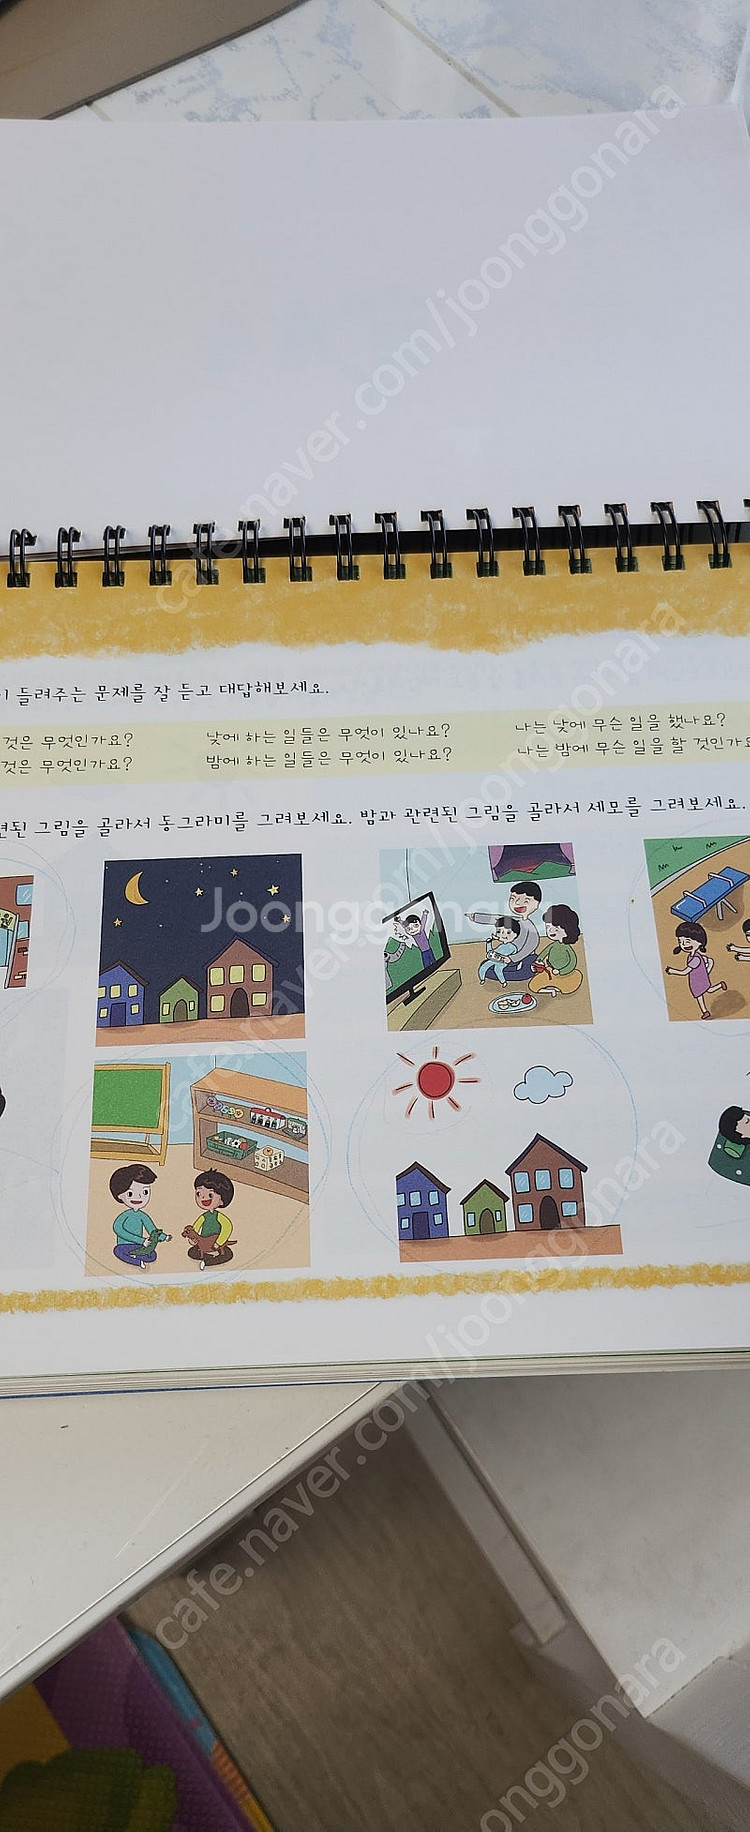 이 들려주는 문제를 잘 듣고 대답해보세요.
것은 무엇인가요? 낮에 하는 일들은 무엇이 있나요? 나는 낮에 무슨 일을 했나요?
것은 무엇인가요? 밤에 하는 일들은 무엇이 있나요? 나는 밤에 무슨 일을 할 것인가요
련된 그림을 골라서 동그라미를 그려보세요. 밤과 관련된 그림을 골라서 세모를 그려보세요.
원
Joonggonara
cafe.naver.com/joonggonara
cafe.naver.com/joonggonara
cafe.naver.com/joonggonara
joonggonara